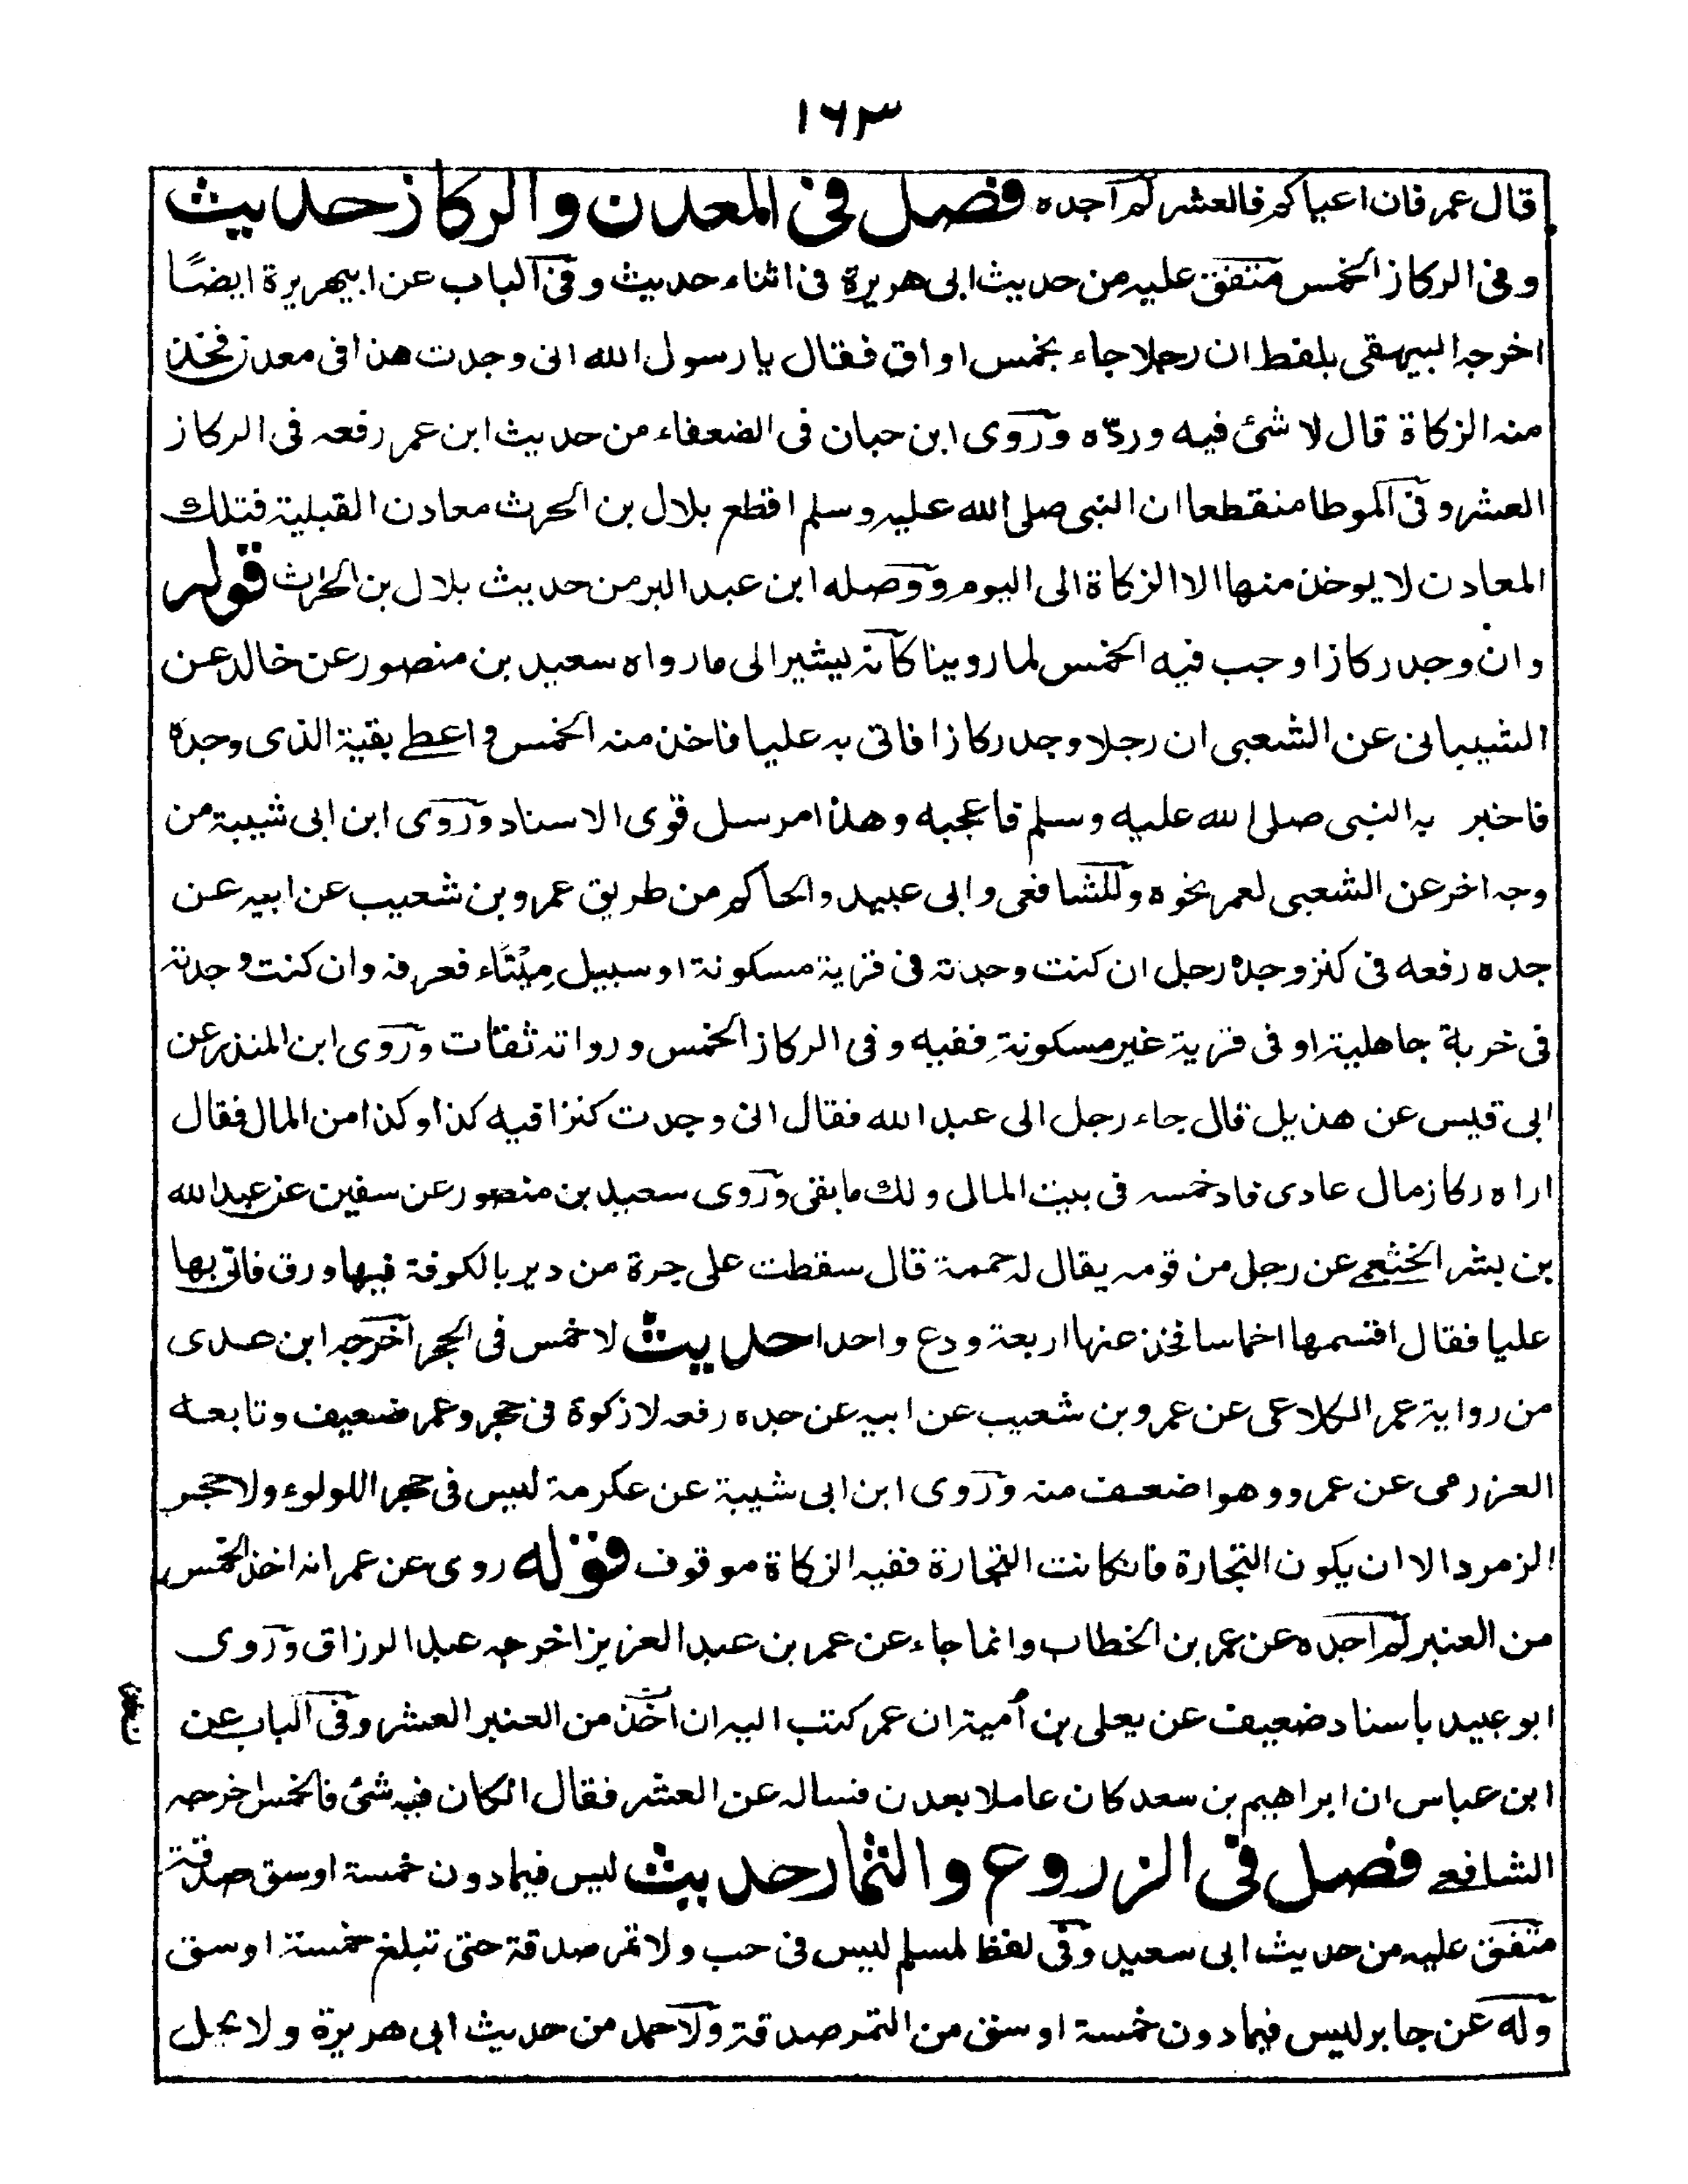 ١٦٣
قال عمر فان اعياكم فالعشر لم اجده فصل فى المعدن والركاز حديث
وفى الركاز الخمس متفق عليه من حديث ابى هريرة فى اثناء حديث وفى الباب عن ابيهريرة ايضًا
اخرجه البيهقى بلفظ ان رجلا جاء بخمس اواق فقال يا رسول الله انى وجدت هذا فى معدن فخذ
منه الزكاة قال لا شئ فيه وردّه وروى ابن حبان فى الضعفاء من حديث ابن عمر رفعه فى الركاز
العشر وفى الموطا منقطعا ان النبى صلى الله عليه وسلم اقطع بلال بن الحرث معادن القبلية فتلك
المعادن لا يوخذ منها الا الزكاة الى اليوم ووصله ابن عبد البر من حديث بلال بن الحرث قوله
وان وجد ركازا وجب فيه الخمس لما روينا كانه يشير الى ما رواه سعيد بن منصور عن خالد عن
الشيبانى عن الشعبى ان رجلا وجد ركازا فاتى به عليا فاخذ منه الخمس و اعطى بقية الذى وجده
فاخبر به النبى صلى الله عليه وسلم فاعجبه وهذا مرسل قوى الاسناد وروى ابن ابى شيبة من
وجه اخر عن الشعبى لعمر نحوه وللشافعى وابى عبيد والحاكم من طريق عمرو بن شعيب عن ابيه عن
جده رفعه فى كنز وجده رجل ان كنت وجدته فى قرية مسكونة او سبيل مِيْتَاء فعرفه وان كنت وجدته
فى خربة جاهلية او فى قرية غير مسكونة ففيه وفى الركاز الخمس ورواته ثقات وروى ابن المنذر عن
ابى قيس عن هذيل قال جاء رجل الى عبد الله فقال انى وجدت كنزا فيه كذا وكذا من المال فقال
اراه ركاز مال عادى فاد خمسه فى بيت المال ولك ما بقى وروى سعيد بن منصور عن سفين عن عبد الله
بن بشر الخثعمى عن رجل من قومه يقال له حممة قال سقطت على جرة من دير بالكوفة فيها ورق فاتى بها
عليا فقال اقسمها اخماسا فخذ عنها اربعة ودع واحدا حديث لا خمس فى الحجر اخرجه ابن عدى
من رواية عمر الكلاعى عن عمرو بن شعيب عن ابيه عن جده رفعه لا زكوة فى حجر وعمر ضعيف وتابعه
العزرمى عن عمرو وهو اضعف منه وروى ابن ابى شيبة عن عكرمة ليس فى حجر اللولوء ولا حجر
الزمرد الا ان يكون التجارة فان كانت التجارة ففيه الزكاة موقوف قوله روى عن عمر انه اخذ الخمس
من العنبر لم اجده عن عمر بن الخطاب وانما جاء عن عمر بن عبد العزيز اخرجه عبد الرزاق وروى
ابو عبيد باسناد ضعيف عن يعلى بن أمية ان عمر كتب اليه ان اخذ من العنبر العشر وفى الباب عن
ابن عباس ان ابراهيم بن سعد كان عاملا بعدن فساله عن العشر فقال ان كان فيه شئ فالخمس اخرجه
الشافعى فصل فى الزروع والثمار حديث ليس فيما دون خمسة اوسق صدقة
متفق عليه من حديث ابى سعيد وفى لفظ لمسلم ليس فى حب ولا تمر صدقة حتى تبلغ خمسة اوسق
وله عن جابر ليس فيما دون خمسة اوسق من التمر صدقة ولاحمد من حديث ابى هريرة ولا يحل